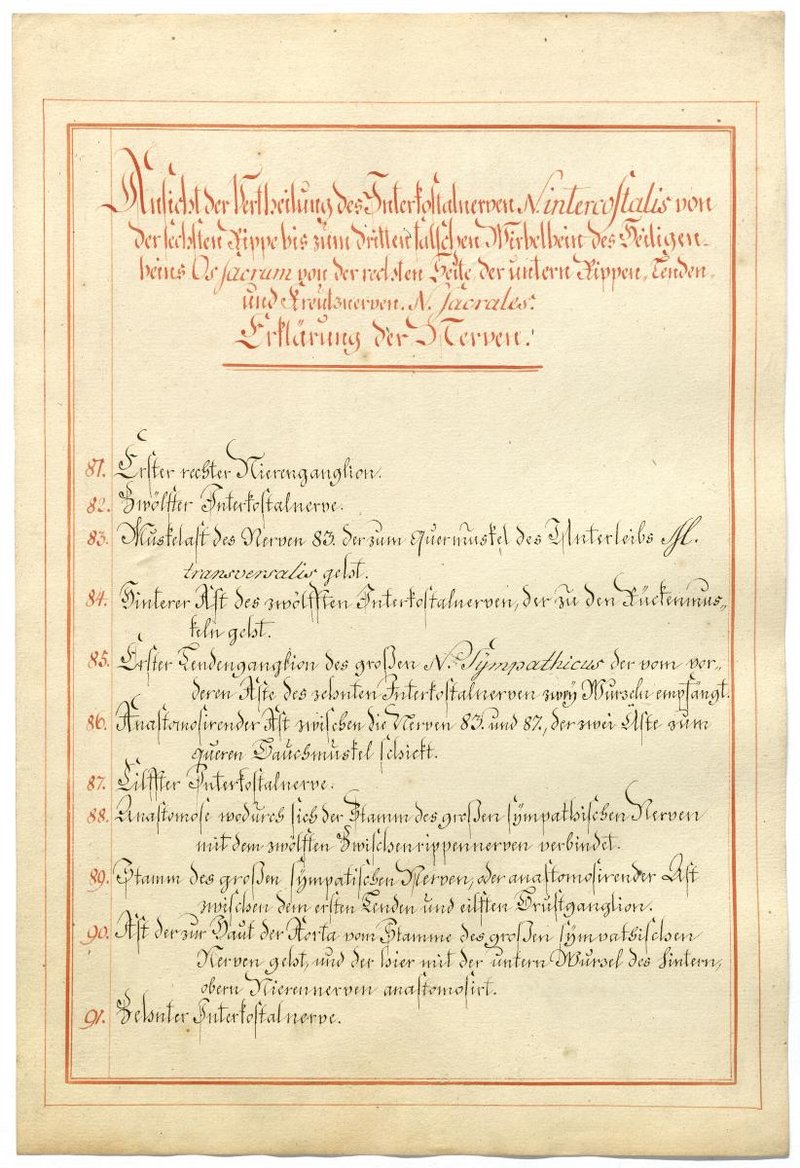 Ansicht der Vertheilung des Interkostalnerven N intercostalis von
der sechsten Rippe bis zum dritten falschen Wirbelbein des Heiligen-
beins Os sacrum von der rechten Seite der untern Rippen, Lenden-
und Kreutznerven. N. sacrales.
Erklärung der Nerven.
81. Erster rechter Nierenganglion.
82. Zwölfter Interkostalnerve.
83. Muskelast des Nerven 83. der zum Quermuskel des Unterleibs M.
transversalis geht.
84. Hinterer Ast des zwölfften Interkostalnerven, der zu den Rückenmus-
keln geht.
85. Erster Lendenganglion des großen N. Sÿmpathicus der vom vor-
deren Aste des zehnten Interkostalnerven zweÿ Wurzeln empfängt.
86. Anastomosirender Ast zwischen die Nerven 83. und 87, der zwei Äste zum
queren Bauchmuskel schickt.
87. Eilffter Interkostalnerve.
88. Anastomose wodurch sich der Stamm des großen sÿmpathischen Nerven
mit dem zwölften Zwischenrippennerven verbindet.
89. Stamm des großen sÿmpatischen Nerven, oder anastomosirender Ast
zwischen dem ersten Lenden und eilften Brustganglion.
90. Ast der zur Haut der Aorta vom Stamme des großen sÿmpathischen
Nerven geht, und der hier mit der untern Wurzel des hintern,
obern Nierennerven anastomosirt.
91. Zehnter Interkostalnerve.